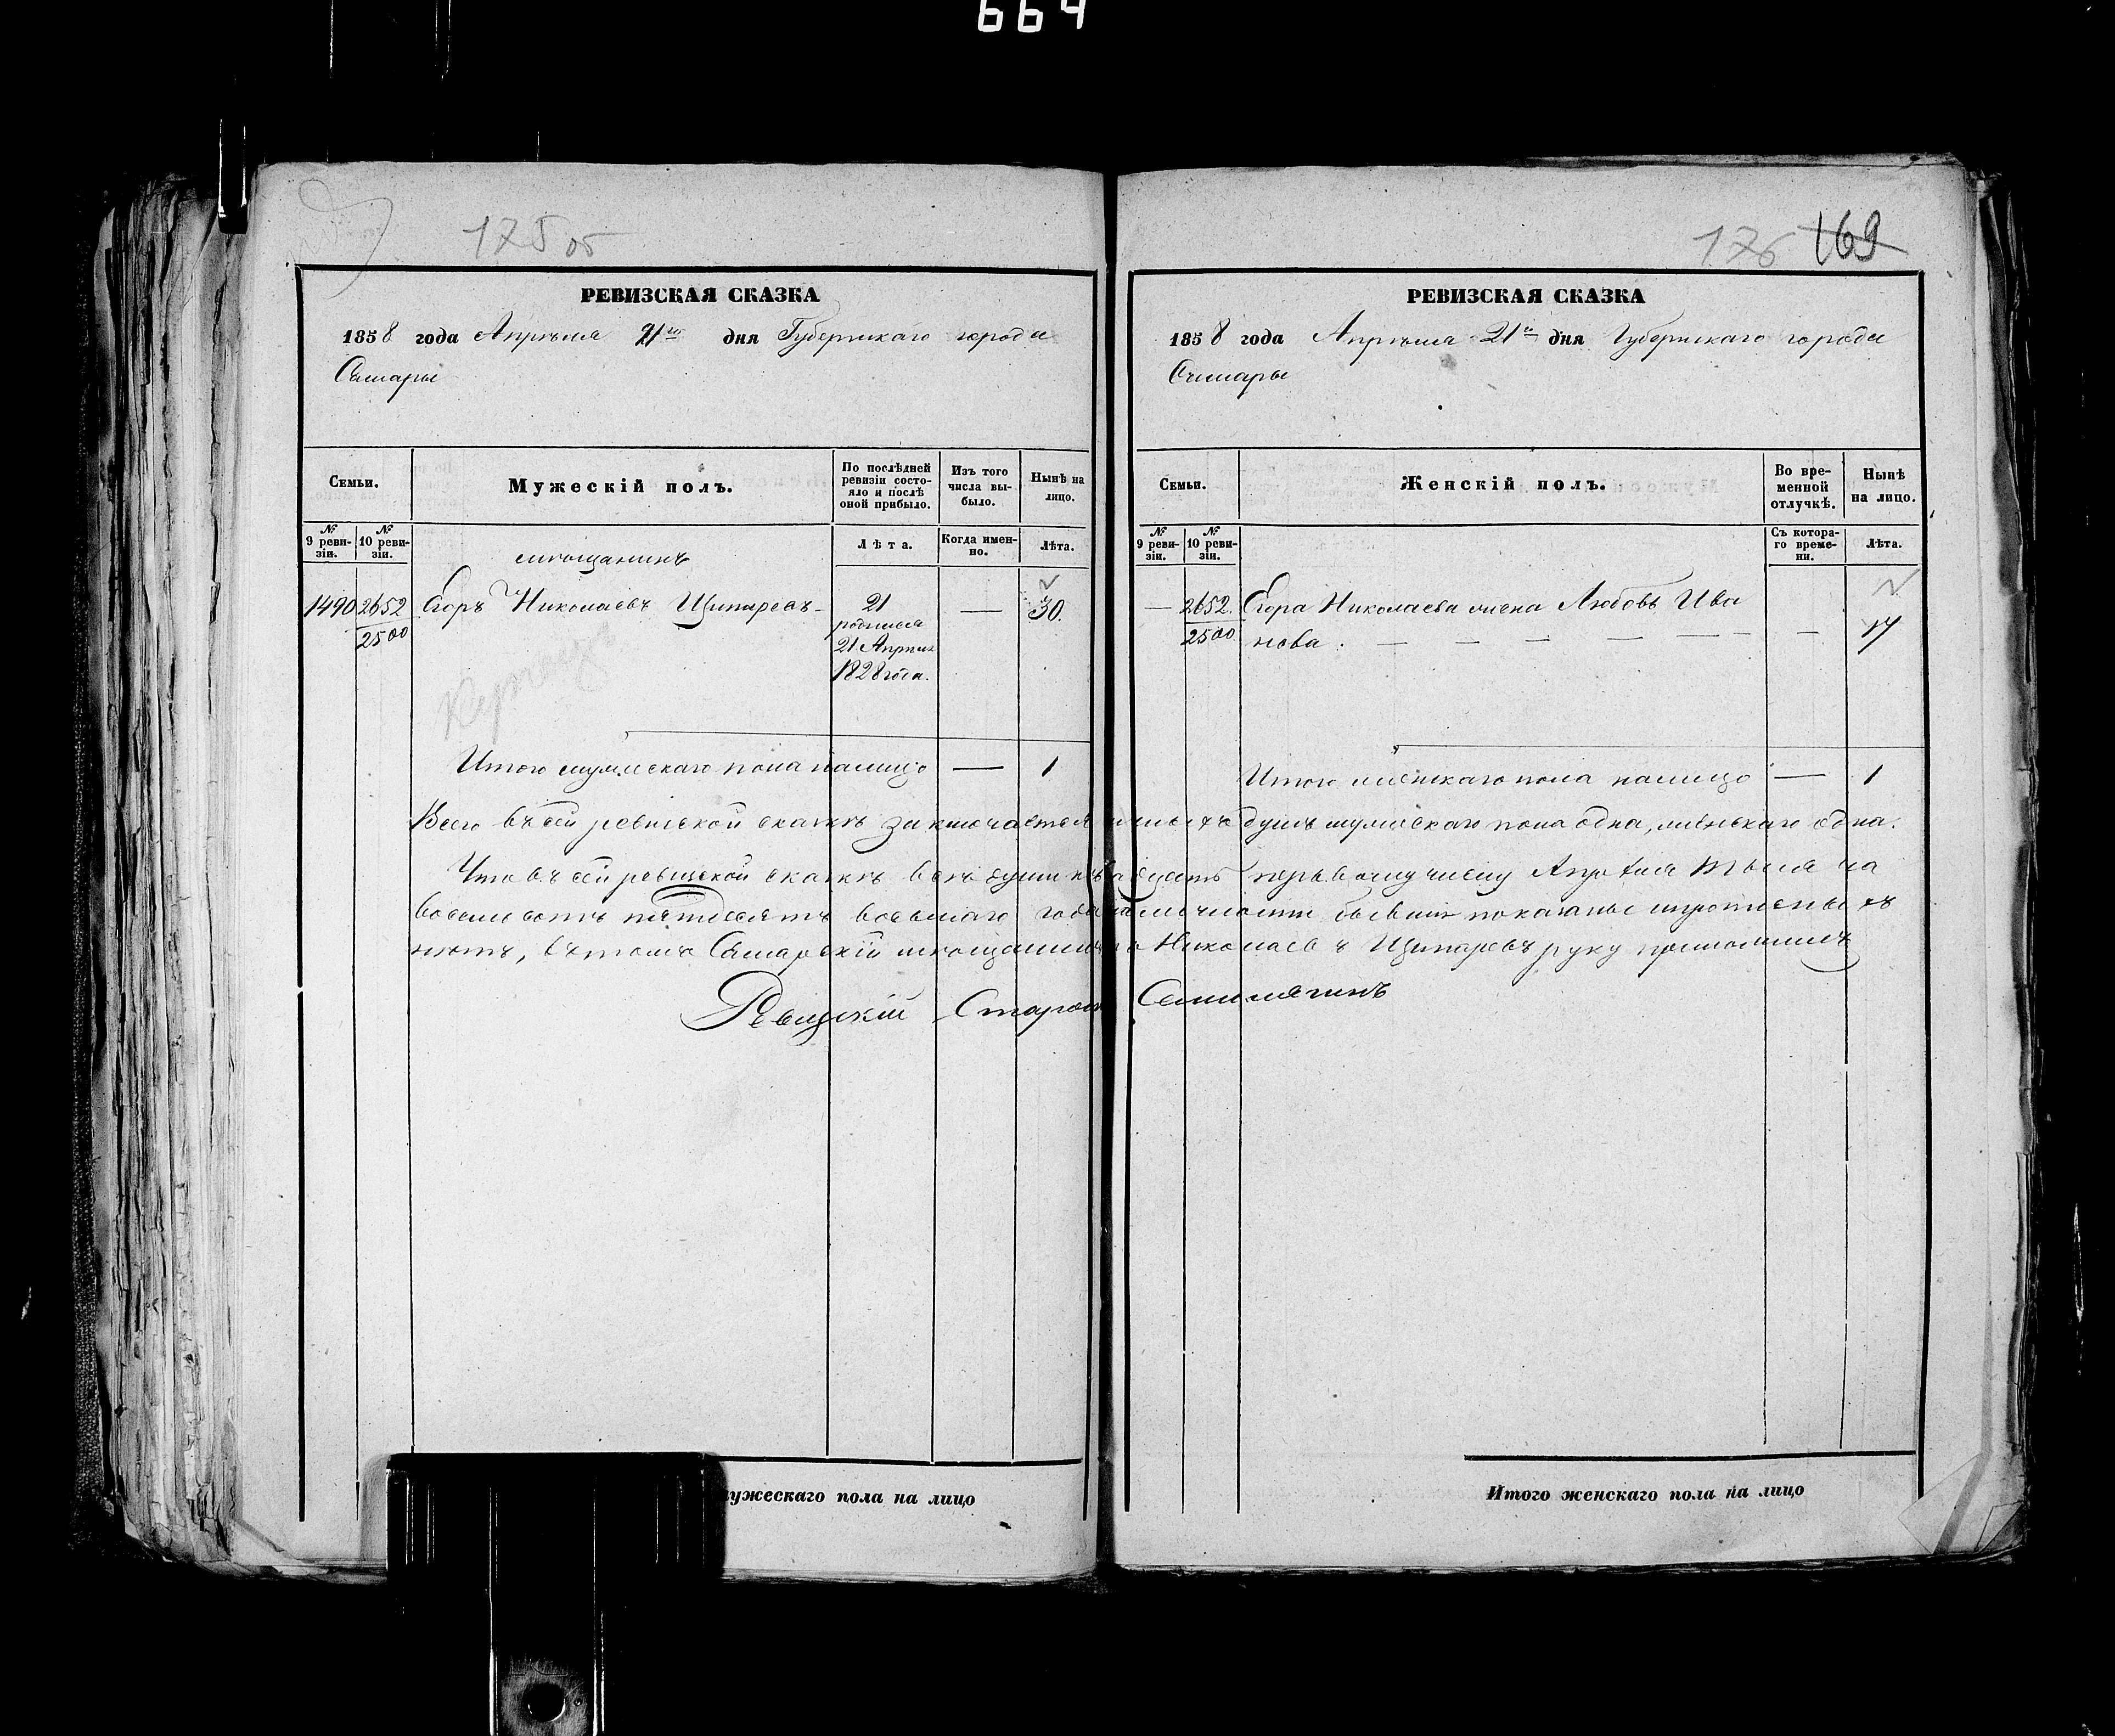 664
175 об
РЕВИЗСКАЯ СКАЗКА
1858 года Апрѣля 21го дня Губернскаго города
Самары
Семьи.
Мужескій полъ.
По послѣдней ревизіи состояло и послѣ оной прибыло.
Изъ того числа выбыло.
Нынѣ на лицо.
№ 9 ревизіи.
№ 10 ревизіи.
Лѣта.
Когда именно.
Лѣта.
мѣщанинъ
1490 2652 Егоръ Николаевъ Щипаревъ 21 — 30.
2500 родился
21 Апрѣля
1828 года.
Итого мужескаго пола налицо — 1
176 169
РЕВИЗСКАЯ СКАЗКА
1858 года Апрѣля 21го дня Губернскаго города
Самары
Семьи.
Женскій полъ.
Во временной отлучкѣ.
Нынѣ на лицо.
№ 9 ревизіи.
№ 10 ревизіи.
Съ котораго времени.
Лѣта.
— 2652. Егора Николаева жена Любовь Ива
2500 нова. — — — — — — — 17
Итого женскаго пола налицо — 1
Всего въ сей ревизской сказкѣ заключается душъ мужескаго пола одна, женскаго одна.
Что въ сей ревизской сказкѣ всѣ души къ двадцать первому числу Апрѣля тысяча
восемьсотъ пятьдесятъ восьмаго года на личности бывшія показаны и прописныхъ
нѣтъ, въ томъ Самарскій мѣщанинъ Николаевъ Щипаревъ руку приложилъ
Ревизскій Староста
мужескаго пола на лицо
Итого женскаго пола на лицо